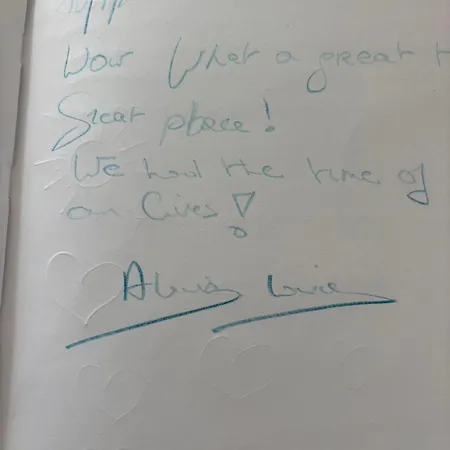 Wow What a great t
Great place!
We had the time of
our lives!